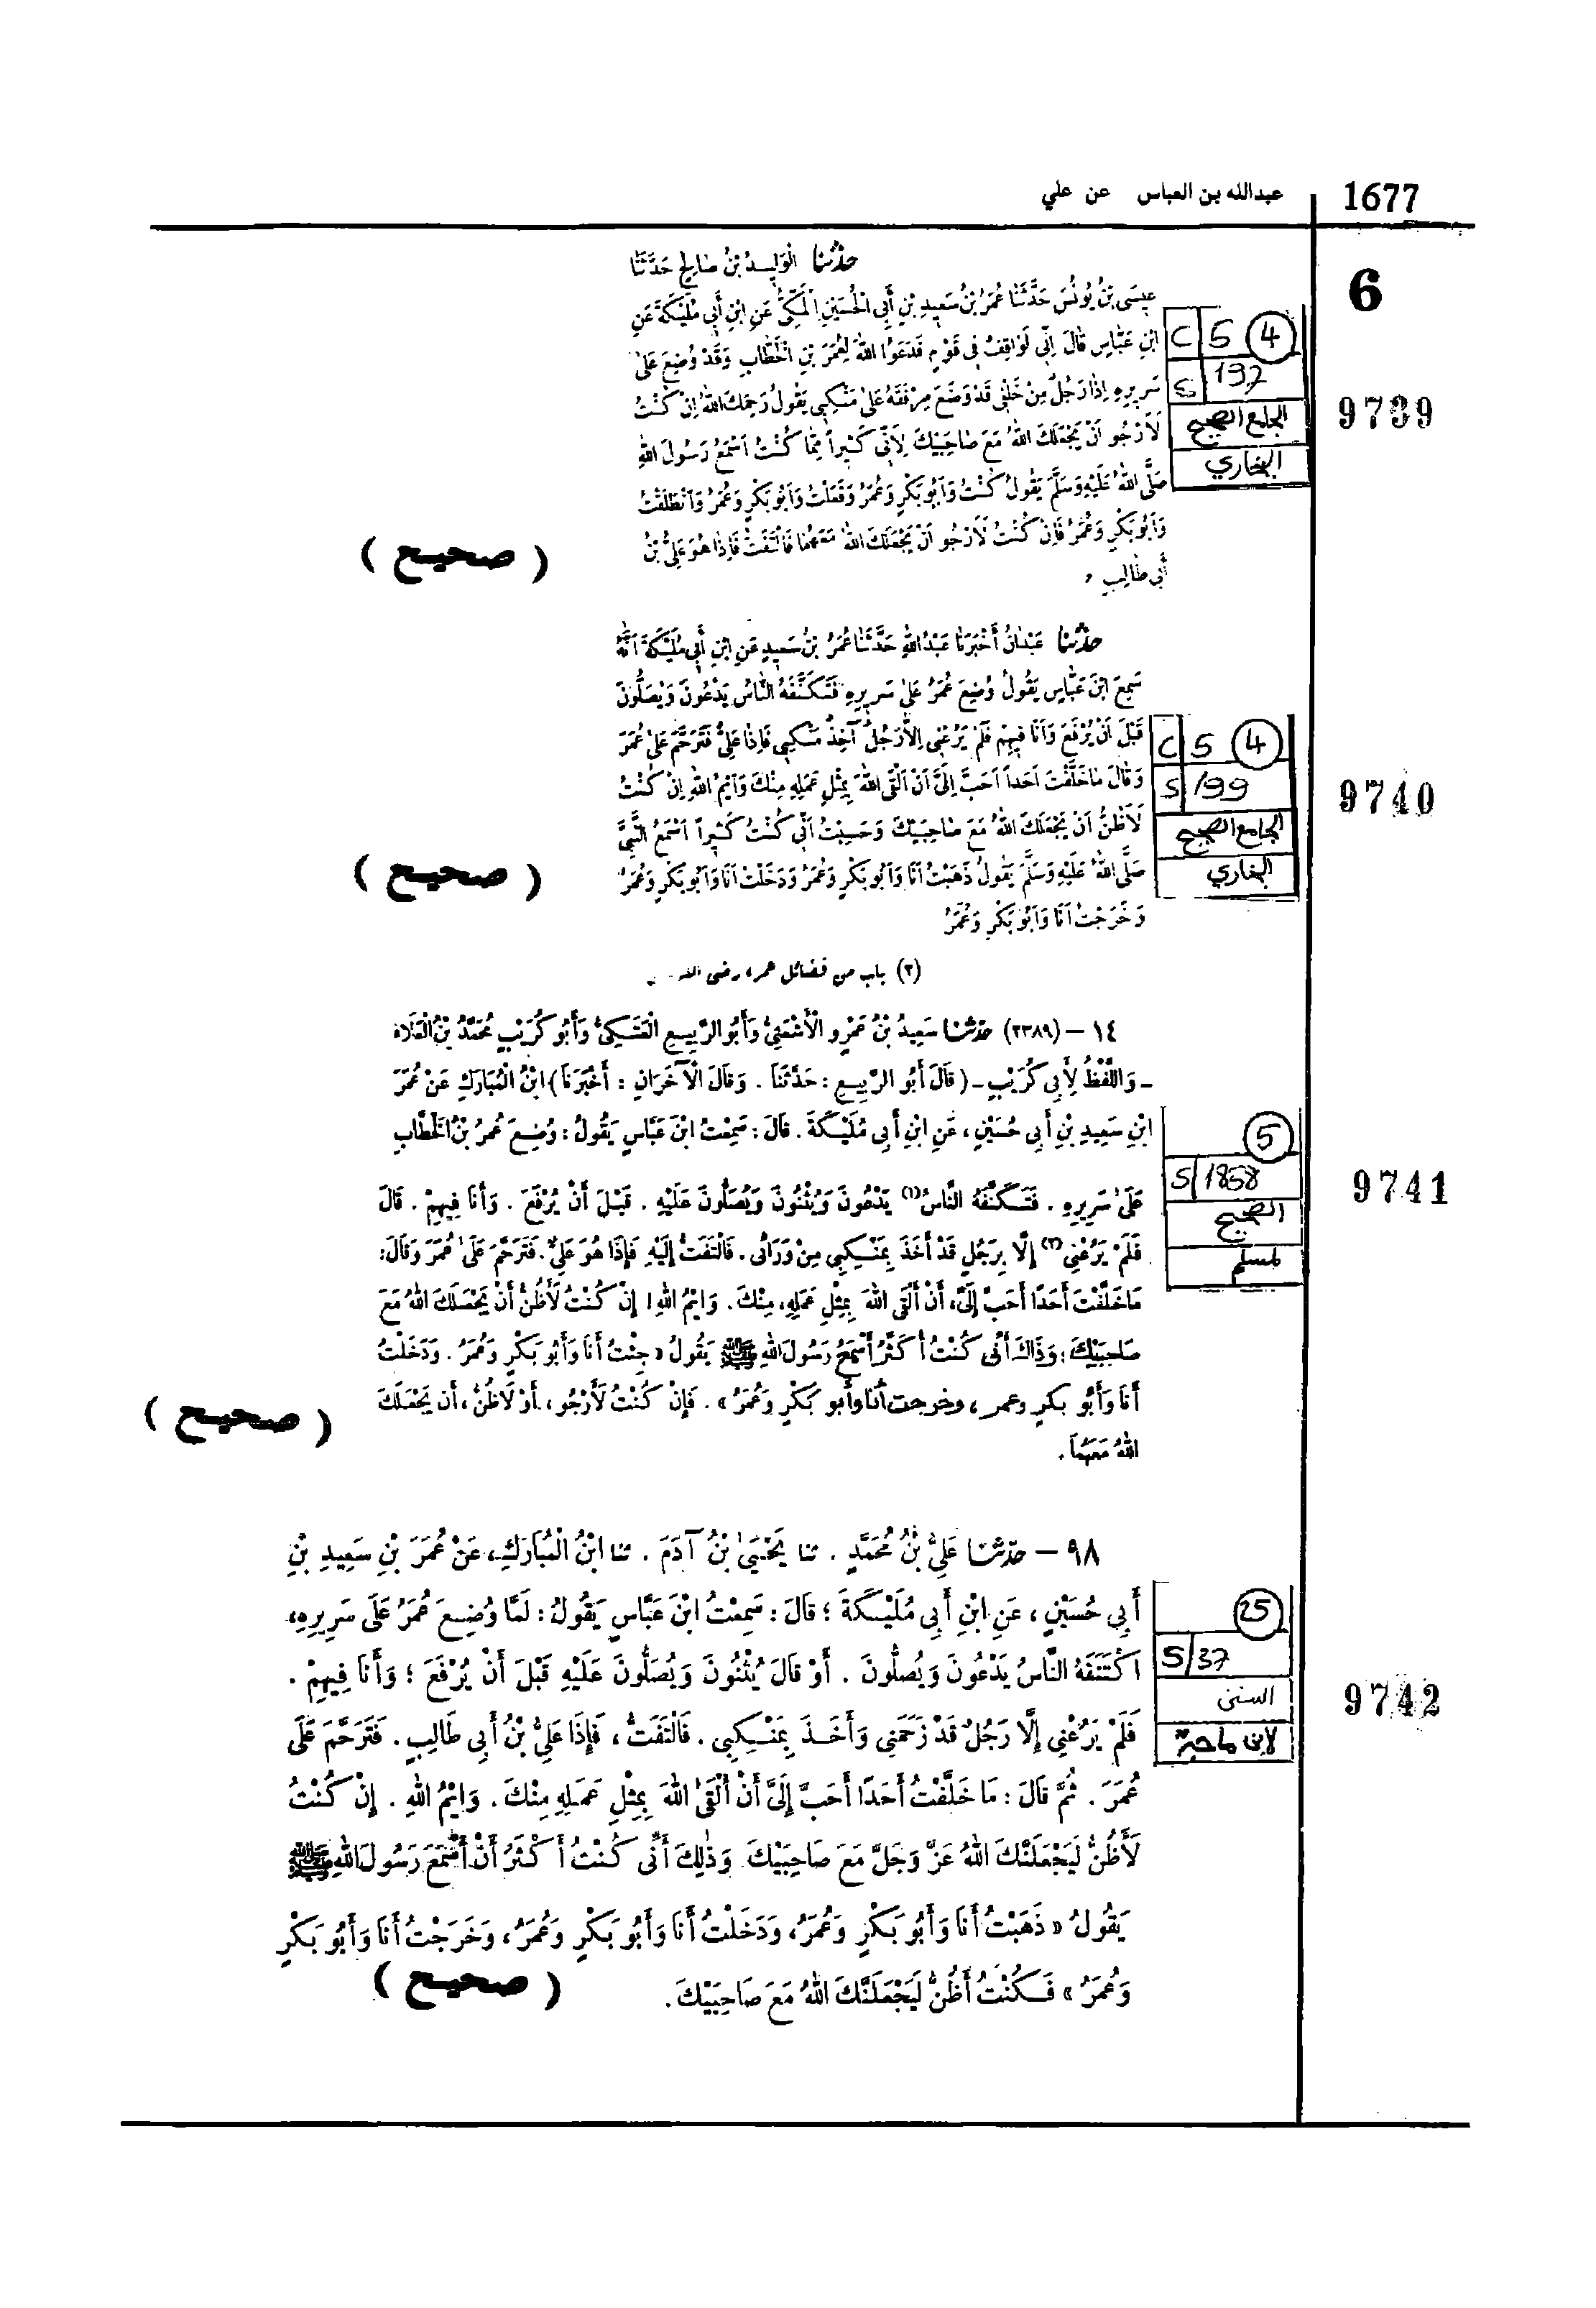 1677
عبدالله بن العباس عن علي
6
حدثنا الْوَلِيدُ بْنُ صَالِحٍ حَدَّثَنَا
عِيسَى بْنُ يُونُسَ حَدَّثَنَا عُمَرُ بْنُ سَعِيدِ بْنِ أَبِي الْحُسَيْنِ الْمَكِّيُّ عَنِ ابْنِ أَبِي مُلَيْكَةَ عَنِ
ابْنِ عَبَّاسٍ قَالَ اِنِّي لَوَاقِفٌ فِي قَوْمٍ فَدَعَوُا اللهَ لِعُمَرَ بْنِ الْخَطَّابِ وَقَدْ وُضِعَ عَلَى
سَرِيرِهِ اِذَا رَجُلٌ مِنْ خَلْفِي قَدْ وَضَعَ مِرْفَقَهُ عَلَى مَنْكِبِي يَقُولُ رَحِمَكَ اللهُ اِنْ كُنْتُ
لَاَرْجُو اَنْ يَجْعَلَكَ اللهُ مَعَ صَاحِبَيْكَ لِاَنِّي كَثِيراً مِمَّا كُنْتُ اَسْمَعُ رَسُولَ اللهِ
صَلَّى اللهُ عَلَيْهِ وَسَلَّمَ يَقُولُ كُنْتُ وَاَبُو بَكْرٍ وَعُمَرُ وَفَعَلْتُ وَاَبُو بَكْرٍ وَعُمَرُ وَانْطَلَقْتُ
وَاَبُو بَكْرٍ وَعُمَرُ فَاِنْ كُنْتُ لَاَرْجُو اَنْ يَجْعَلَكَ اللهُ مَعَهُمَا فَالْتَفَتُّ فَاِذَا هُوَ عَلِيُّ بْنُ
أَبِي طَالِبٍ ,
( صحيح )
C 5 4
197
الجامع الصحيح
البخاري
9739
حدثنا عَبْدَانُ أَخْبَرَنَا عَبْدُ اللهِ حَدَّثَنَا عُمَرُ بْنُ سَعِيدٍ عَنِ ابْنِ أَبِي مُلَيْكَةَ اَنَّهُ
سَمِعَ ابْنَ عَبَّاسٍ يَقُولُ وُضِعَ عُمَرُ عَلَى سَرِيرِهِ فَتَكَنَّفَهُ النَّاسُ يَدْعُونَ وَيُصَلُّونَ
قَبْلَ اَنْ يُرْفَعَ وَاَنَا فِيهِمْ فَلَمْ يَرُعْنِي اِلَّا رَجُلٌ آخِذٌ مَنْكِبِي فَاِذَا عَلِيٌّ فَتَرَحَّمَ عَلَى عُمَرَ
وَقَالَ مَا خَلَّفْتَ اَحَداً اَحَبَّ اِلَيَّ اَنْ اَلْقَى اللهَ بِمِثْلِ عَمَلِهِ مِنْكَ وَايْمُ اللهِ اِنْ كُنْتُ
لَاَظُنُّ اَنْ يَجْعَلَكَ اللهُ مَعَ صَاحِبَيْكَ وَحَسِبْتُ اَنِّي كُنْتُ كَثِيراً اَسْمَعُ النَّبِيَّ
صَلَّى اللهُ عَلَيْهِ وَسَلَّمَ يَقُولُ ذَهَبْتُ اَنَا وَاَبُو بَكْرٍ وَعُمَرُ وَدَخَلْتُ اَنَا وَاَبُو بَكْرٍ وَعُمَرُ
وَخَرَجْتُ اَنَا وَاَبُو بَكْرٍ وَعُمَرُ
( صحيح )
C 5 4
S 199
الجامع الصحيح
البخاري
9740
(٢) باب من فضائل عمر، رضى الله
١٤ – (٢٣٨٩) حدثنا سَعِيدُ بْنُ عَمْرٍو الْأَشْعَثِيُّ وَأَبُو الرَّبِيعِ الْعَتَكِيُّ وَأَبُو كُرَيْبٍ مُحَمَّدُ بْنُ الْعَلَاءِ
ـ وَاللَّفْظُ لِأَبِي كُرَيْبٍ ـ (قَالَ أَبُو الرَّبِيعِ : حَدَّثَنَا . وَقَالَ الْآخَرَانِ : أَخْبَرَنَا) ابْنُ الْمُبَارَكِ عَنْ عُمَرَ
ابْنِ سَعِيدِ بْنِ أَبِي حُسَيْنٍ ، عَنِ ابْنِ أَبِي مُلَيْكَةَ . قَالَ : سَمِعْتُ ابْنَ عَبَّاسٍ يَقُولُ : وُضِعَ عُمَرُ بْنُ الْخَطَّابِ
عَلَى سَرِيرِهِ . فَتَكَنَّفَهُ النَّاسُ (١) يَدْعُونَ وَيُثْنُونَ وَيُصَلُّونَ عَلَيْهِ . قَبْلَ أَنْ يُرْفَعَ . وَأَنَا فِيهِمْ . قَالَ
فَلَمْ يَرُعْنِي (٢) إِلَّا بِرَجُلٍ قَدْ أَخَذَ بِمَنْكِبِي مِنْ وَرَائِي . فَالْتَفَتُّ إِلَيْهِ فَإِذَا هُوَ عَلِيٌّ . فَتَرَحَّمَ عَلَى عُمَرَ وَقَالَ :
مَا خَلَّفْتَ أَحَدًا أَحَبَّ إِلَيَّ ، أَنْ أَلْقَى اللهَ بِمِثْلِ عَمَلِهِ ، مِنْكَ . وَايْمُ اللهِ ! إِنْ كُنْتُ لَأَظُنُّ أَنْ يَجْعَلَكَ اللهُ مَعَ
صَاحِبَيْكَ . وَذَاكَ أَنِّي كُنْتُ أُكَثِّرُ أَسْمَعُ رَسُولَ اللهِ ﷺ يَقُولُ « جِئْتُ أَنَا وَأَبُو بَكْرٍ وَعُمَرُ . وَدَخَلْتُ
أَنَا وَأَبُو بكرٍ وعمر ، وخرجت أنا وأبو بَكْرٍ وَعُمَرُ » . فَإِنْ كُنْتُ لَأَرْجُو ، أَوْ لَأَظُنُّ ، أَنْ يَجْعَلَكَ
اللهُ مَعَهُمَا .
( صحيح )
5
S 1858
الصحيح
لمسلم
9741
٩٨ – حدثنا عَلِيُّ بْنُ مُحَمَّدٍ . ثنا يَحْيَى بْنُ آدَمَ . ثنا ابْنُ الْمُبَارَكِ ، عَنْ عُمَرَ بْنِ سَعِيدِ بْنِ
أَبِي حُسَيْنٍ ، عَنِ ابْنِ أَبِي مُلَيْكَةَ ؛ قَالَ : سَمِعْتُ ابْنَ عَبَّاسٍ يَقُولُ : لَمَّا وُضِعَ عُمَرُ عَلَى سَرِيرِهِ ،
اكْتَنَفَهُ النَّاسُ يَدْعُونَ وَيُصَلُّونَ . أَوْ قَالَ يُثْنُونَ وَيُصَلُّونَ عَلَيْهِ قَبْلَ أَنْ يُرْفَعَ ؛ وَأَنَا فِيهِمْ .
فَلَمْ يَرُعْنِي إِلَّا رَجُلٌ قَدْ زَحَمَنِي وَأَخَذَ بِمَنْكِبِي . فَالْتَفَتُّ ، فَإِذَا عَلِيُّ بْنُ أَبِي طَالِبٍ . فَتَرَحَّمَ عَلَى
عُمَرَ . ثُمَّ قَالَ : مَا خَلَّفْتَ أَحَدًا أَحَبَّ إِلَيَّ أَنْ أَلْقَى اللهَ بِمِثْلِ عَمَلِهِ مِنْكَ . وَايْمُ اللهِ . إِنْ كُنْتُ
لَأَظُنُّ لَيَجْعَلَنَّكَ اللهُ عَزَّ وَجَلَّ مَعَ صَاحِبَيْكَ وَذَلِكَ أَنِّي كُنْتُ أَكْثَرُ أَنْ أَسْمَعَ رَسُولَ اللهِ ﷺ
يَقُولُ « ذَهَبْتُ أَنَا وَأَبُو بَكْرٍ وَعُمَرُ ، وَدَخَلْتُ أَنَا وَأَبُو بَكْرٍ وَعُمَرُ ، وَخَرَجْتُ أَنَا وَأَبُو بَكْرٍ
وَعُمَرُ » فَكُنْتُ أَظُنُّ لَيَجْعَلَنَّكَ اللهُ مَعَ صَاحِبَيْكَ .
( صحيح )
25
S 37
السنن
لابن ماجة
9742